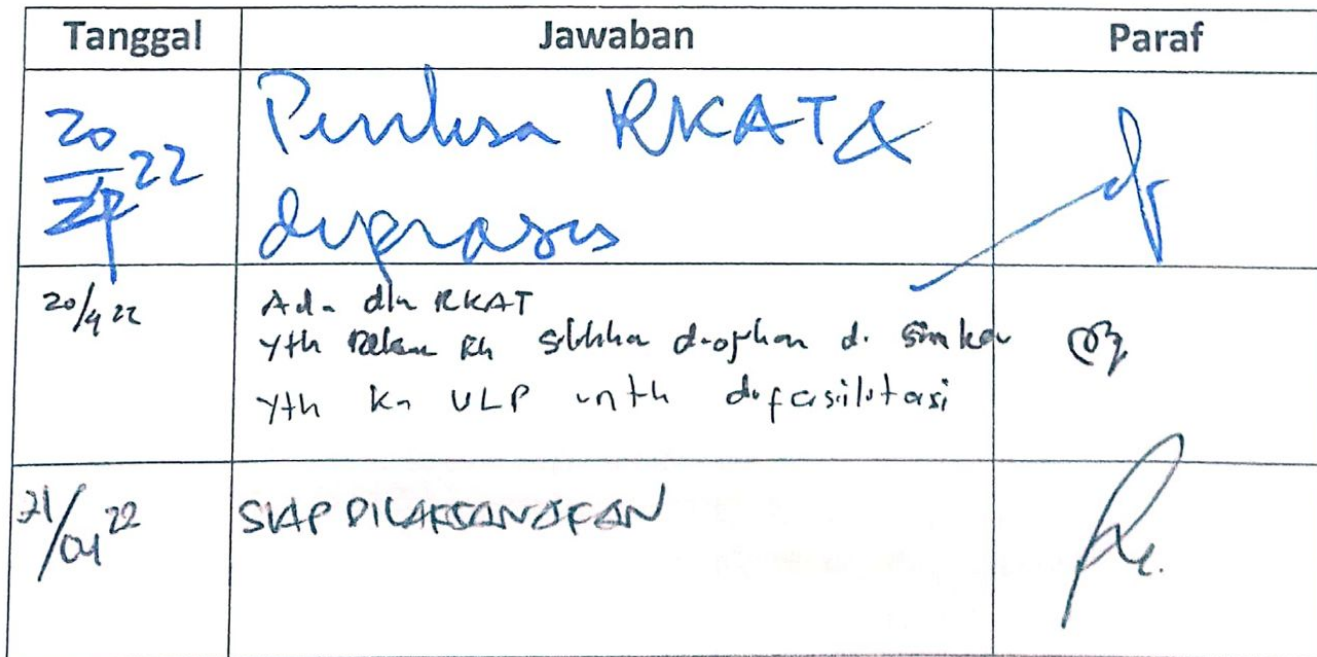 Tanggal Jawaban Paraf
20/4 22 Periksa RKAT &
diproses
20/4 22 Ada dlm RKAT
Yth Rekan silahkan di
Yth Ka ULP untk difasilitasi
21/04 22 SIAP DILAKSANAKAN